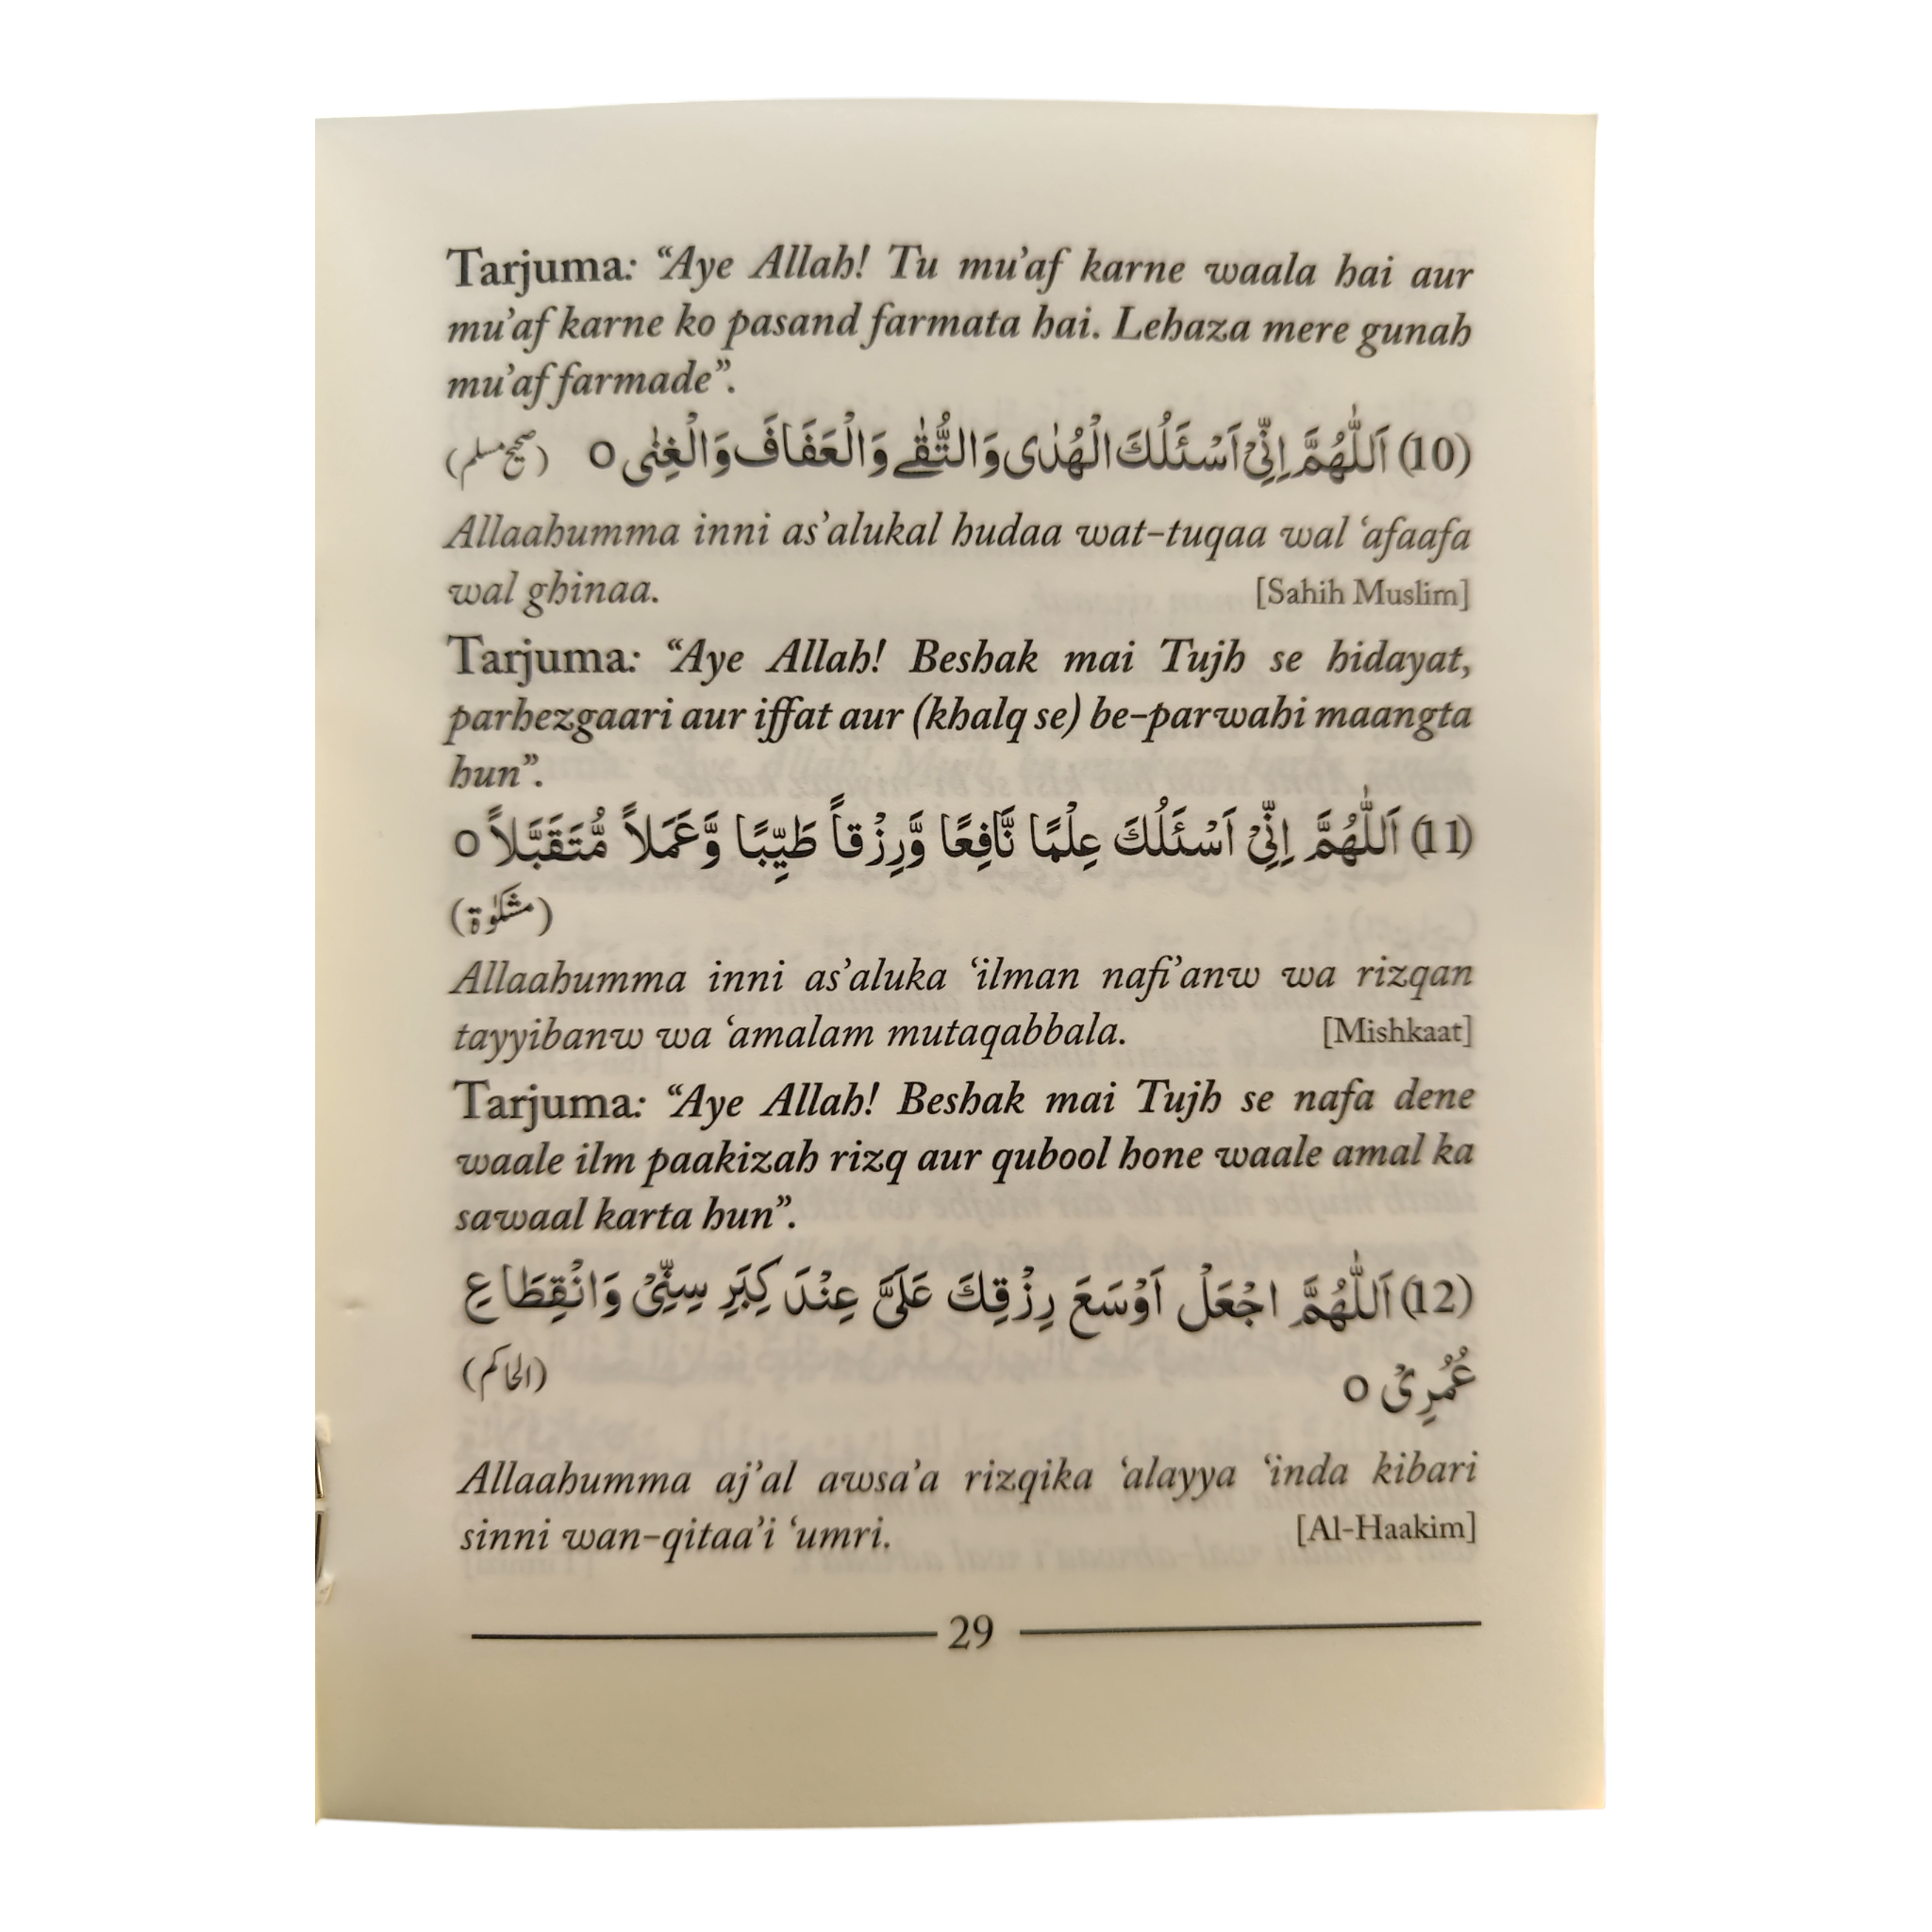 Tarjuma: “Aye Allah! Tu mu’af karne waala hai aur
mu’af karne ko pasand farmata hai. Lehaza mere gunah
mu’af farmade”.
(10) اَللّٰهُمَّ اِنِّیْ اَسْئَلُكَ الْهُدٰی وَالتُّقٰے وَالْعَفَافَ وَالْغِنٰی o (صحیح مسلم)
Allaahumma inni as’alukal hudaa wat-tuqaa wal ‘afaafa
wal ghinaa. [Sahih Muslim]
Tarjuma: “Aye Allah! Beshak mai Tujh se hidayat,
parhezgaari aur iffat aur (khalq se) be-parwahi maangta
hun”.
(11) اَللّٰهُمَّ اِنِّیْ اَسْئَلُكَ عِلْمًا نَّافِعًا وَّرِزْقاً طَیِّبًا وَّعَمَلاً مُّتَقَبَّلاً o
(مشکوٰۃ)
Allaahumma inni as’aluka ‘ilman nafi’anw wa rizqan
tayyibanw wa ‘amalam mutaqabbala. [Mishkaat]
Tarjuma: “Aye Allah! Beshak mai Tujh se nafa dene
waale ilm paakizah rizq aur qubool hone waale amal ka
sawaal karta hun”.
(12) اَللّٰهُمَّ اجْعَلْ اَوْسَعَ رِزْقِكَ عَلَیَّ عِنْدَ کِبَرِ سِنِّیْ وَانْقِطَاعِ
عُمُرِیْ o (الحاکم)
Allaahumma aj’al awsa’a rizqika ‘alayya ‘inda kibari
sinni wan-qitaa’i ‘umri. [Al-Haakim]
29